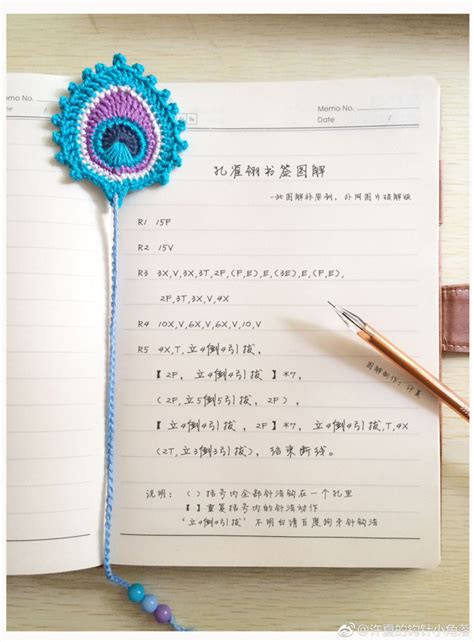 emo No.
Memo No.
Date /
孔雀翎书签图解
-此图解非原创，外网图片破解版
R1 15F
R2 15V
R3 3X,V,3X,3T,2F,(F,E),E,(3E),E,(E,F),
2F,3T,3X,V,4X
R4 10X,V,6X,V,6X,V,10,V
R5 4X,T,立4倒4引拔，
【2F，立4倒4引拔】*7，
(2F,立5倒5引拔，2F)，
【立4倒4引拔，2F】*7，立4倒4引拔,T,4X
(2T,立3倒3引拔)，结束断线。
图解制作：计真
说明：( )括号内全部针法钩在一个孔里
【 】重复括号内的针法动作
'立4倒4引拔'不明白请百度狗牙针钩法
@许夏的钩针小角落